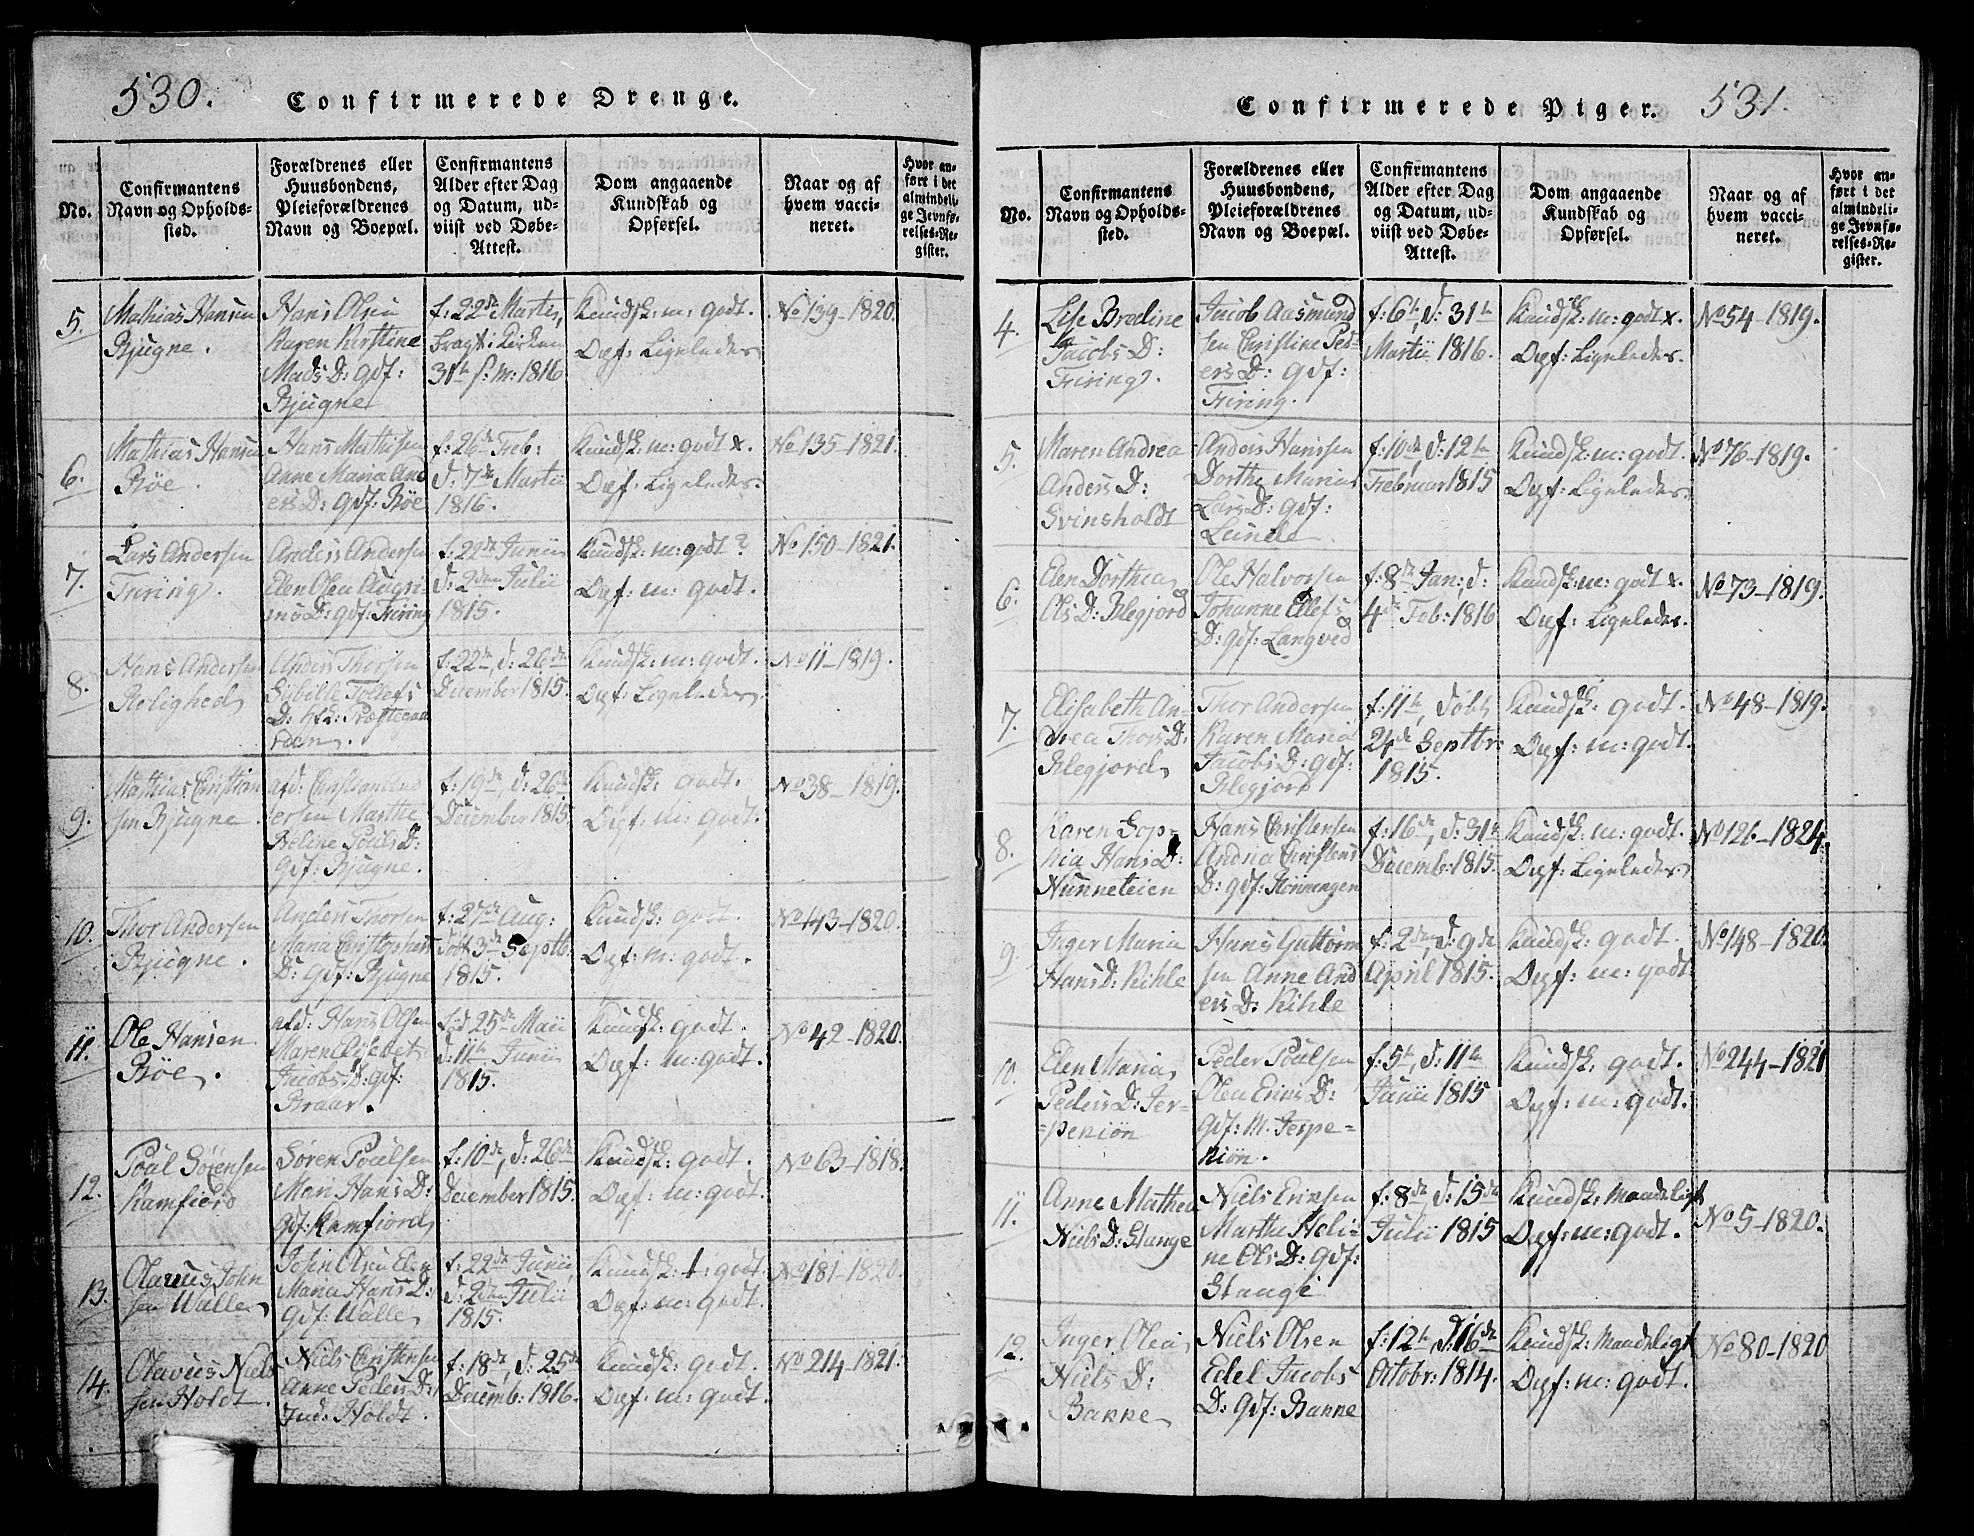 530.
Confirmerede Drenge.
No.
Confirmantens
Navn og Opholds-
sted.
Forældrenes eller
Huusbondens,
Pleieforældrenes
Navn og Boepæl.
Confirmantens
Alder efter Dag
og Datum, ud-
viist ved Døbe-
Attest.
Dom angaaende
Kundskab og
Opførsel.
Naar og af
hvem vacci-
neret.
Hvor an-
ført i det
almindeli-
ge Jevnfø-
relses-Re-
gister.
5.
Mathias Hansen
Bjugne.
Hans Olsen
Karen Kirstine
Mads D: gdf:
Bjugne
f: 22de Martii,
fragt i Kirken
31te s: m: 1816
Kundsk: m: godt.
Opf: Ligeledes
No 139-1820.
6.
Mathias Hansen
Röe.
Hans Mathisen
Anne Maria And
ers D: gdf: Röe
f: 26de Feb:
d: 7de Martii
1816.
Kundsk: m: godt x.
Opf: Ligeledes.
No 135-1821.
7.
Lars Andersen
Friring.
Anders Andersen
Elen Olea Augri-
ms D: gdf: Friring
f: 22de Junii
d: 2den Julii
1815.
Kundsk: m: godt
Opf: m: godt.
No 150-1821.
8.
Hans Andersen
Roligheds
Anders Thorsen
Sibille Tollefs
D: Præstegaa
rden.
f: 22de, d: 26de
December 1815.
Kundsk: m: godt.
Opf: Ligeledes
No 11-1819.
9.
Mathias Christian
sen Bjugne.
afd: Christian And
ersen Marthe
Heline Pouls D:
gdf: Bjugne.
f: 19de, d: 26de
December 1815
Kundsk: godt.
Opf: m: godt.
No 38-1819.
10.
Thor Andersen
Bjugne.
Anders Thorsen
Maria Christophers
D: gdf: Bjugne
f: 27de Aug:
döbt 3de Septb
1815.
Kundsk: godt.
Opf: m: godt.
No 43-1820.
11.
Ole Hansen
Röe.
afd: Hans Olsen
Maren Elisebet
Jacobs D: gdf:
Braar.
fød 25de Maii
d: 11te Junii
1815.
Kundsk: godt.
Opf: m: godt.
No 42-1820.
12.
Poul Sörensen
Ramfiord
Sören Poulsen
Mari Hans D:
gdf: Ramfiord
f: 10de, d: 26de
December 1815.
Kundsk: godt.
Opf: m: godt.
No 63-1818.
13.
Olavus John
sen Walle
John Olsen Elen
Maria Hans D:
gdf: Walle
f: 22de Junii,
d: 2den Julii
1815.
Kundsk: t: godt
Opf: m: godt.
No 181-1820.
14.
Olavus Niels
sen Holdt.
Niels Christensen
Anne Peders D:
Ind: Holdt.
f: 18de, d: 25de
Decemb: 1816.
Kundsk: godt.
Opf: m: godt.
No 214-1821.
Confirmerede Piger.
531.
No.
Confirmantens
Navn og Opholds-
sted.
Forældrenes eller
Huusbondens,
Pleieforældrenes
Navn og Boepæl.
Confirmantens
Alder efter Dag
og Datum, ud-
viist ved Døbe-
Attest.
Dom angaaende
Kundskab og
Opførsel.
Naar og af
hvem vacci-
neret.
Hvor an-
ført i det
almindeli-
ge Jevnfø-
relses-Re-
gister.
4.
Lise Bredine
Jacobs D:
Friring.
Jacob Aasmund
sen Christine Ped-
ers D: gdf:
Friring.
f: 6te, d: 31te
Martii 1816.
Kundsk: m: godt x.
Opf: Ligeledes.
No 54-1819.
5.
Maren Andrea
Anders D:
Svinsholdt
Anders Hanssen
Dorthe Maria
Lars D: gdf:
Lunde
f: 10de, d: 12te
Februar 1815
Kundsk: m: godt.
Opf: Ligeledes
No 76-1819.
6.
Elen Dorthea
Ols D: Blegjord
Ole Halvorsen
Johanne Ellefs
D: gdf: Langved
f: 8de Jan; d:
4de Feb: 1816
Kundsk: m: godt x.
Opf: Ligeledes.
No 73-1819.
7.
Elisabeth An-
drea Thors D:
Blegjord
Thor Andersen
Karen Maria
Jacobs D: gdf:
Blegjord
f: 11te, döbt
24de Septbr:
1815.
Kundsk: godt.
Opf: m: godt.
No 48-1819.
8.
Karen Sop-
hia Hans D:
Nunneteien
Hans Christensen
Andrea Christens
D: gdf: Hönningen
f: 16de, d: 31te
Decemb: 1815.
Kundsk: m: godt.
Opf: Ligeledes
No 121-1824.
9.
Inger Maria
Hans D: Kihle
Hans Guttorm
sen Anne And
ers D: Kihle
f: 2den, d: 9de
April 1815.
Kundsk: godt.
Opf: m: godt
No 148-1820.
10.
Elen Maria
Peders D: Jer-
=peniön
Peder Poulsen
Olea Erics D:
gdf: M. Jespe-
niön.
f: 5te, d: 11te
Junii 1815
Kundsk: godt.
Opf: m: godt.
No 244-1821
11.
Anne Mathea
Niels D: Stange
Niels Ericsen
Marthe Heli-
ne Ols D: gdf:
Stange
f: 8de, d: 15de
Julii 1815
Kundsk: Maadeligt
Opf: m: godt.
No 5-1820.
12.
Inger Olea
Niels D:
Bakke
Niels Olsen
Edel Jacobs
D: gdf: Bakke
f: 12te, d: 16de
Octobr: 1814.
Kundsk: Maadeligt
Opf: m: godt.
No 80-1820